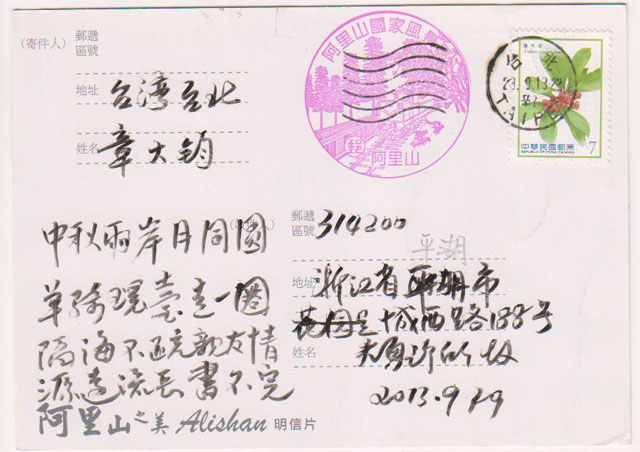 (寄件人)
郵遞
區號
地址 台湾台北
姓名 章大鈞
阿里山國家風景
郵
阿里山
台北
TAIPEI
中華民國郵票
REPUBLIC OF CHINA (TAIWAN)
7
中秋兩岸月同圓
單騎環臺走一圈
隔海不疏親友情
源遠流長書不完
阿里山之美 Alishan 明信片
郵遞
區號 314200
平湖
地址 浙江省平湖市
城西路188号
姓名
2013.9.19